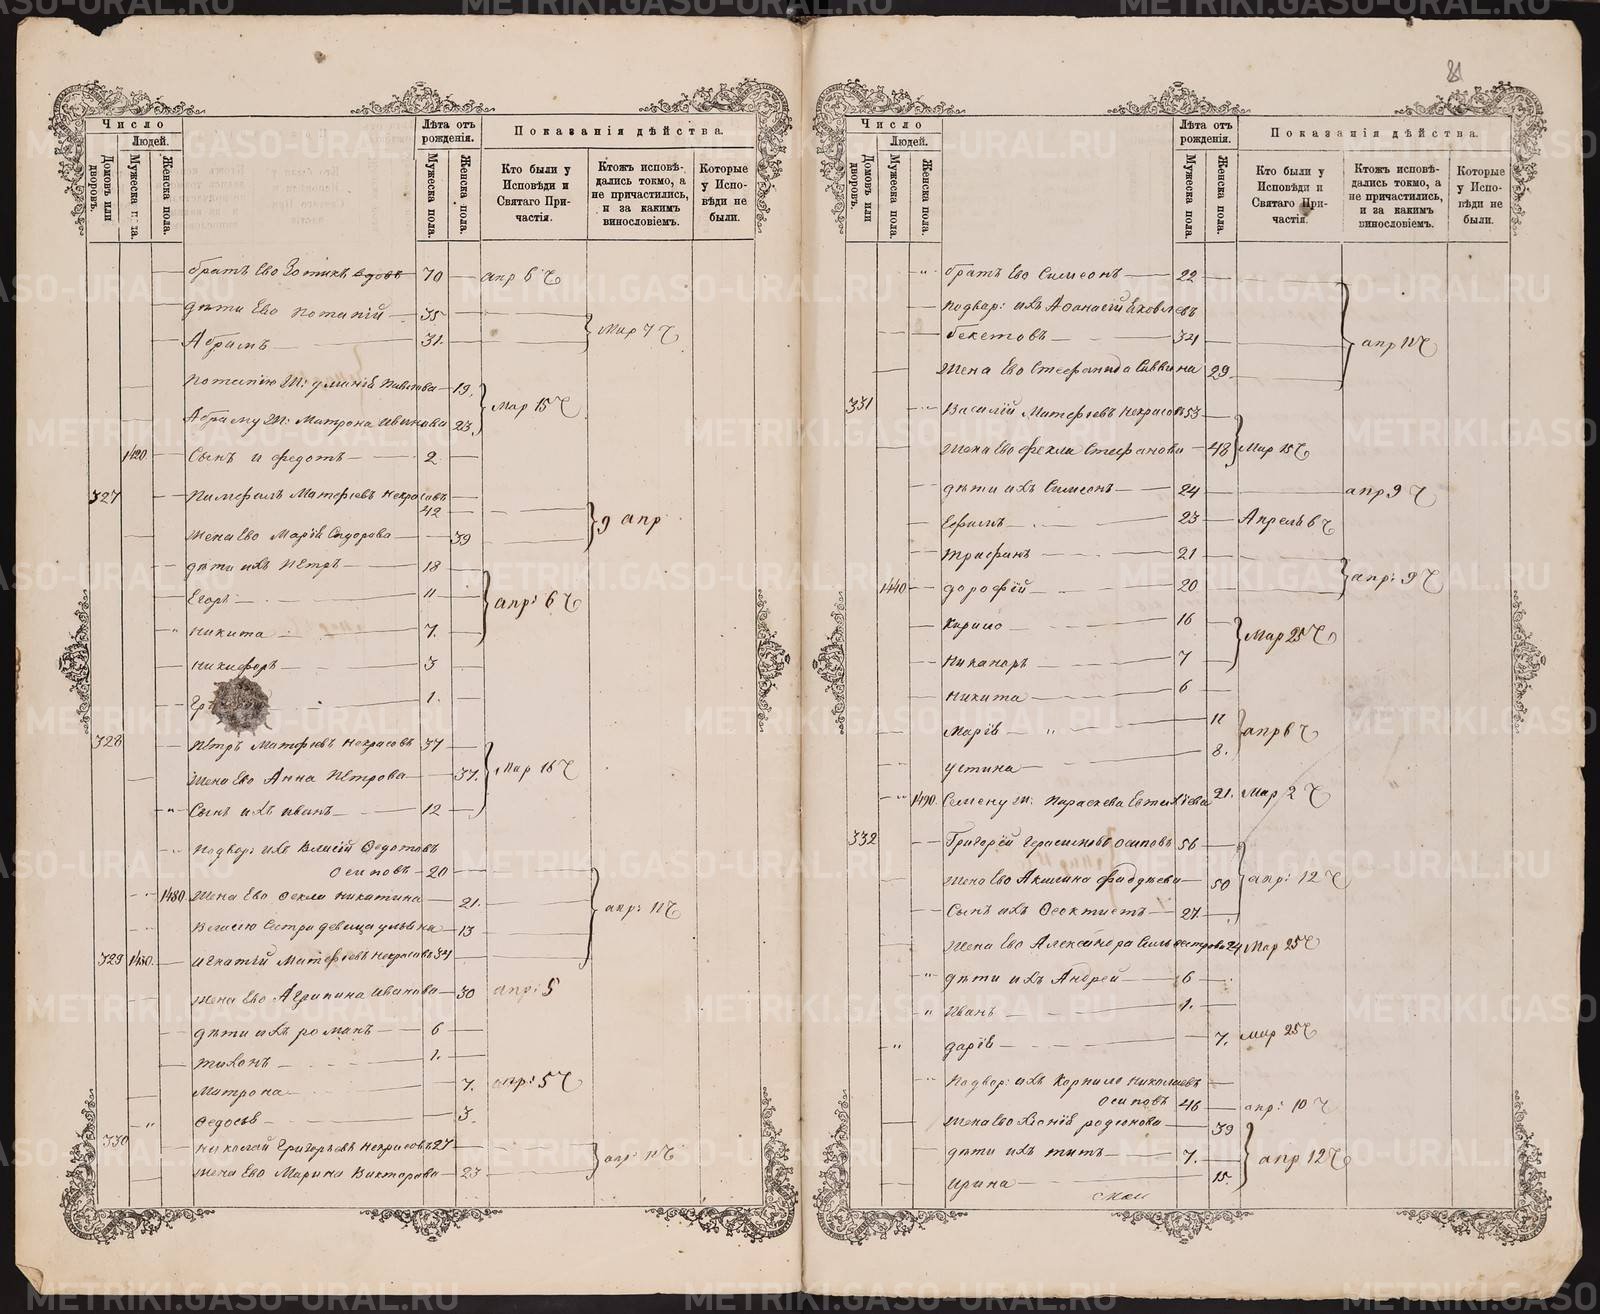 Число
Людей.
Домовъ или дворовъ.
Мужеска пола.
Женска пола.
Лѣта отъ рожденія.
Мужеска пола.
Женска пола.
Показанія дѣйства.
Кто были у Исповѣди и Святаго Причастія.
Ктожъ исповѣдались токмо, а не причастились, и за какимъ винословіемъ.
Которые у Исповѣди не были.
братъ Ево Зотикъ вдовъ 70 апр 6
дѣти Ево Потапій 35
Мар 7
Абрамъ 31
Потапію ж: Павлова 19
Мар 15
Абраму ж: Матрона Иванова 23
1420 Сынъ и Федотъ 2
327 Матфіевъ Некрасовъ
42
9 апр
жена Ево Марія Сидорова 39
дѣти ихъ Пётръ 18
Егоръ 11
апр: 6
Никита 7
Никифоръ 3
1
328 Пётръ Матфіевъ Некрасовъ 37
жена Ево Анна Пётрова 37
Мар 16
Сынъ ихъ Иванъ 12
Подвор: ихъ Власій Федотовъ
Осиповъ 20
1480 жена Ево Фекла Никитина 21
апр: 11
Власію Сестра девица Ульяна 13
329 1430 Игнатій Матфіевъ Некрасовъ 34
жена Ево Агрипина Иванова 30 апр: 5
дѣти ихъ Романъ 6
Тихонъ 1
Матрона 7 апр: 5
Федосья 3
330 Николай Григорьевъ Некрасовъ 27
апр: 11
жена Ево Марина Викторова 23
Число
Людей.
Домовъ или дворовъ.
Мужеска пола.
Женска пола.
Лѣта отъ рожденія.
Мужеска пола.
Женска пола.
Показанія дѣйства.
Кто были у Исповѣди и Святаго Причастія.
Ктожъ исповѣдались токмо, а не причастились, и за какимъ винословіемъ.
Которые у Исповѣди не были.
братъ Ево Симеонъ 22
Подвор: ихъ Афанасій Яковлевъ
Бекетовъ 34
апр 11
жена Ево Стефанида Саввина 29
331 Василій Матфіевъ Некрасовъ 53
жена Ево Фекла Стефанова 48 Мар 15
дѣти ихъ Симеонъ 24 апр 9
Ефимъ 23 Апрель 6
Трифонъ 21
апр: 9
1440 Дорофій 20
Кирило 16
Мар 25
Никаноръ 7
Никита 6
Марія 11
апр 6
Устина 8
1490 Семену ж: Параскева 21 Мар 2
332 Григорій Герасимовъ Осиповъ 56
жена Ево Акилина Фаддеева 50 апр: 12
Сынъ ихъ Феоктистъ 27
жена Ево Александра Сильвестрова 24 Мар 25
дѣти ихъ Андрей 6
Иванъ 1
Дарія 7 Мар 25
Подвор: ихъ Корнило Николаевъ
Осиповъ 46 апр: 10
жена Ево Ксенія Родионова 39
дѣти ихъ Титъ 7
апр 12
Ирина 15
METRIKI.GASO-URAL.RU